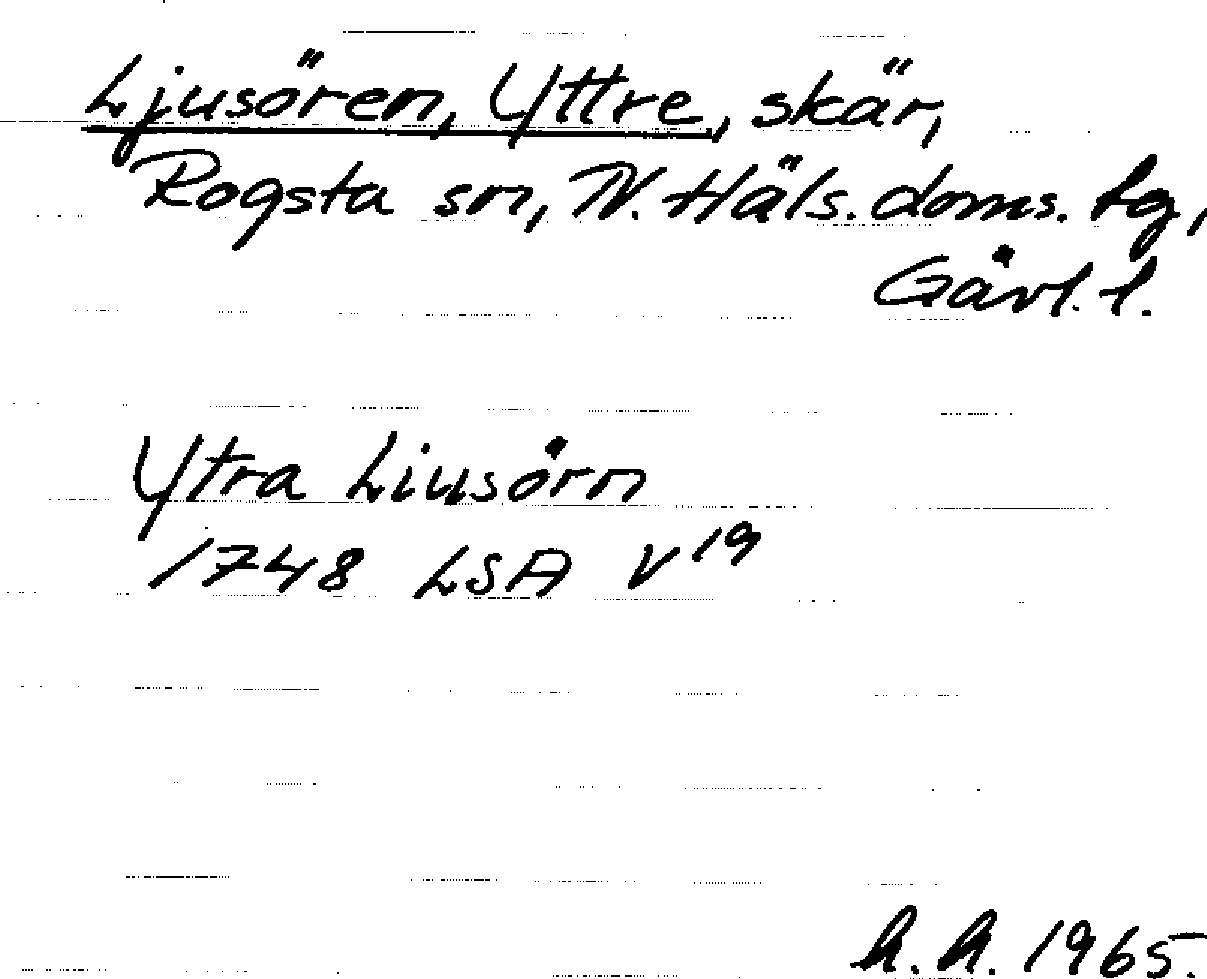 Ljusören, Yttre, skär,
Rogsta sn, N. Häls. doms. tg,
Gävl. l.
Ytra Liusörn
1748 LSA V19
h. h. 1965.